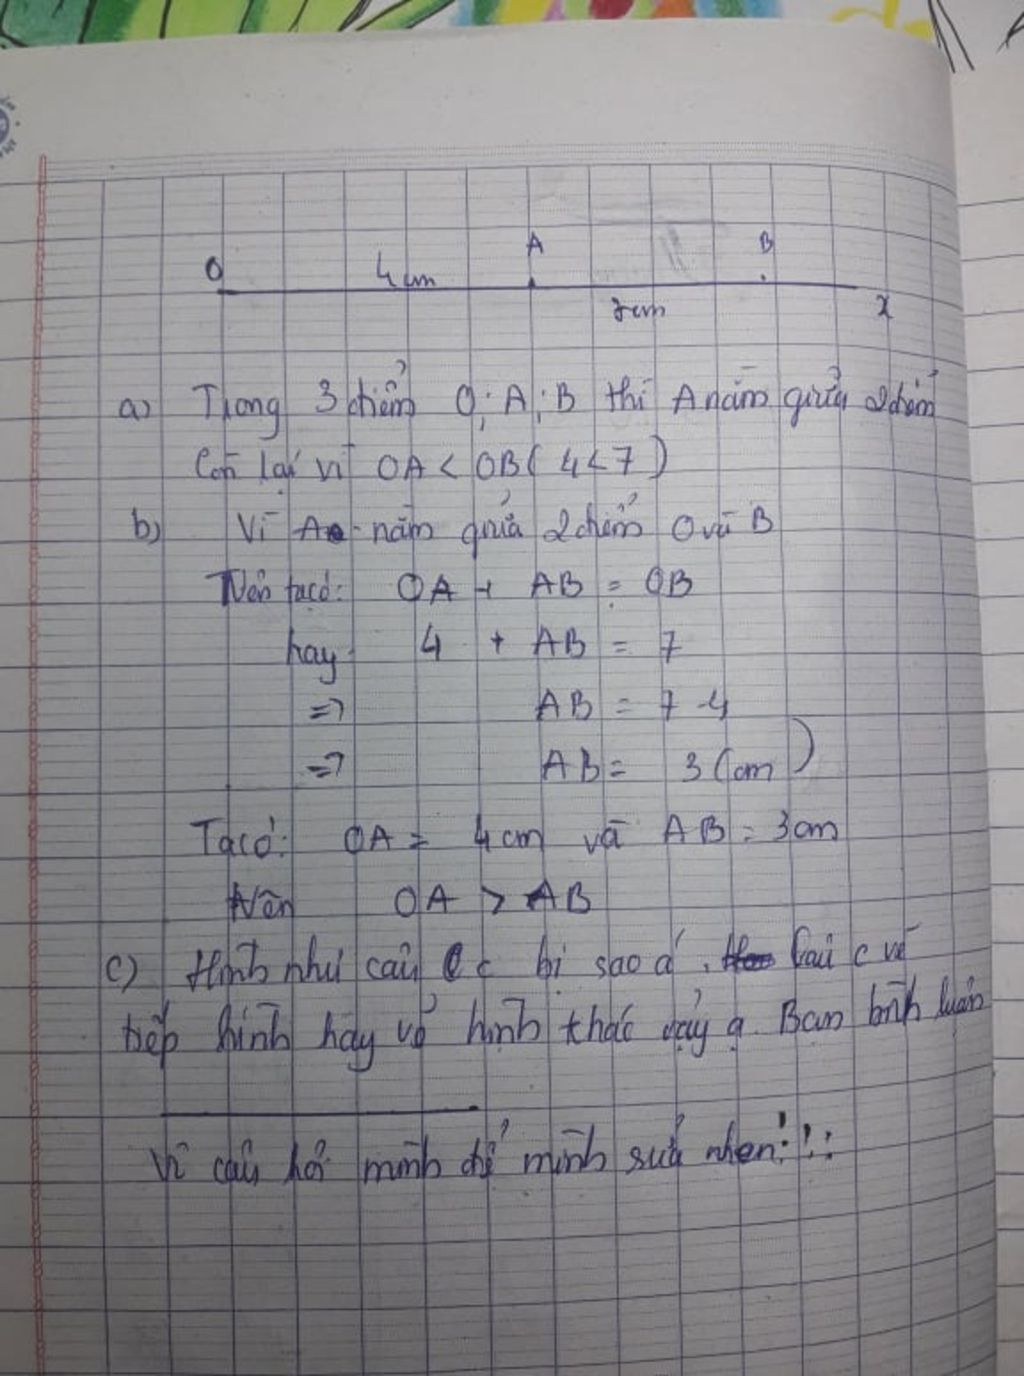 O 4cm A B
7cm x
a) Trong 3 điểm O; A; B thì A nằm giữa 2 điểm
Còn lại vì OA < OB ( 4 < 7 )
b) Vì A nằm giữa 2 điểm O và B
Nên ta có: OA + AB = OB
hay 4 + AB = 7
=> AB = 7 - 4
=> AB = 3 (cm)
Ta có: OA = 4 cm và AB = 3cm
Nên OA > AB
c) Hình như câu c bị sao á, câu c vẽ
tiếp hình hay vẽ hình khác vậy ạ. Bạn bình luận
Vì câu hỏi mình để mình sửa nhen!!!